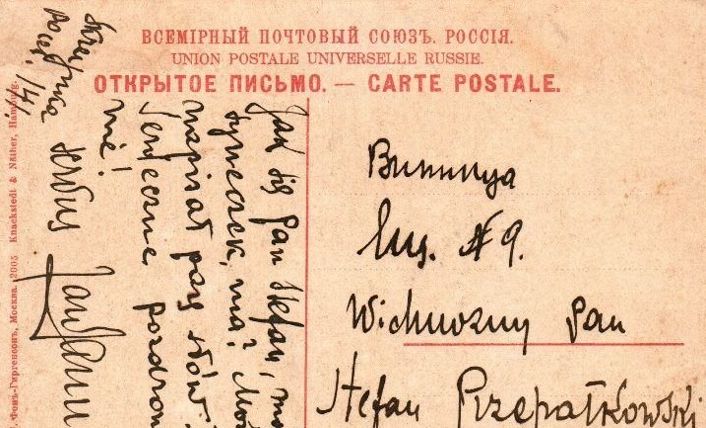 ВСЕМІРНЫЙ ПОЧТОВЫЙ СОЮЗЪ. РОССІЯ.
UNION POSTALE UNIVERSELLE RUSSIE.
ОТКРЫТОЕ ПИСЬМО. — CARTE POSTALE.
Винница
№ 9.
Wielmożny Pan
Stefan Przepałkowski
Jak się Pan Stefan, ma
syneczek, ma? Może
napisał parę słów?
Serdeczne pozdrow
nie!
Фонъ-Гиргенсонъ, Москва. 2005 Knackstedt & Näther, Hamburg.